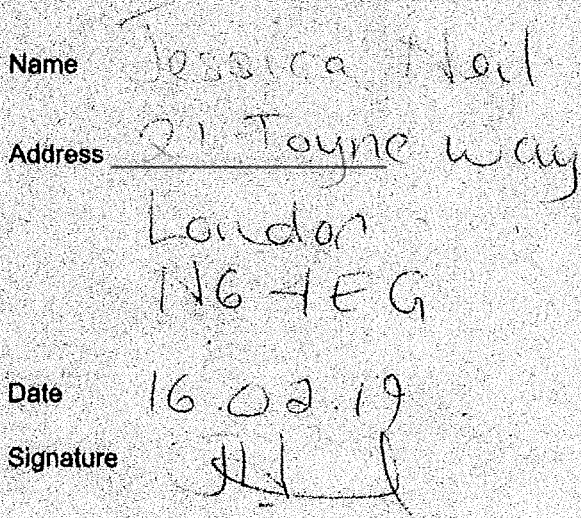 Name Jessica Neil
Address 21 Toyne Way
London
N6 4EG
Date 16.02.19
Signature